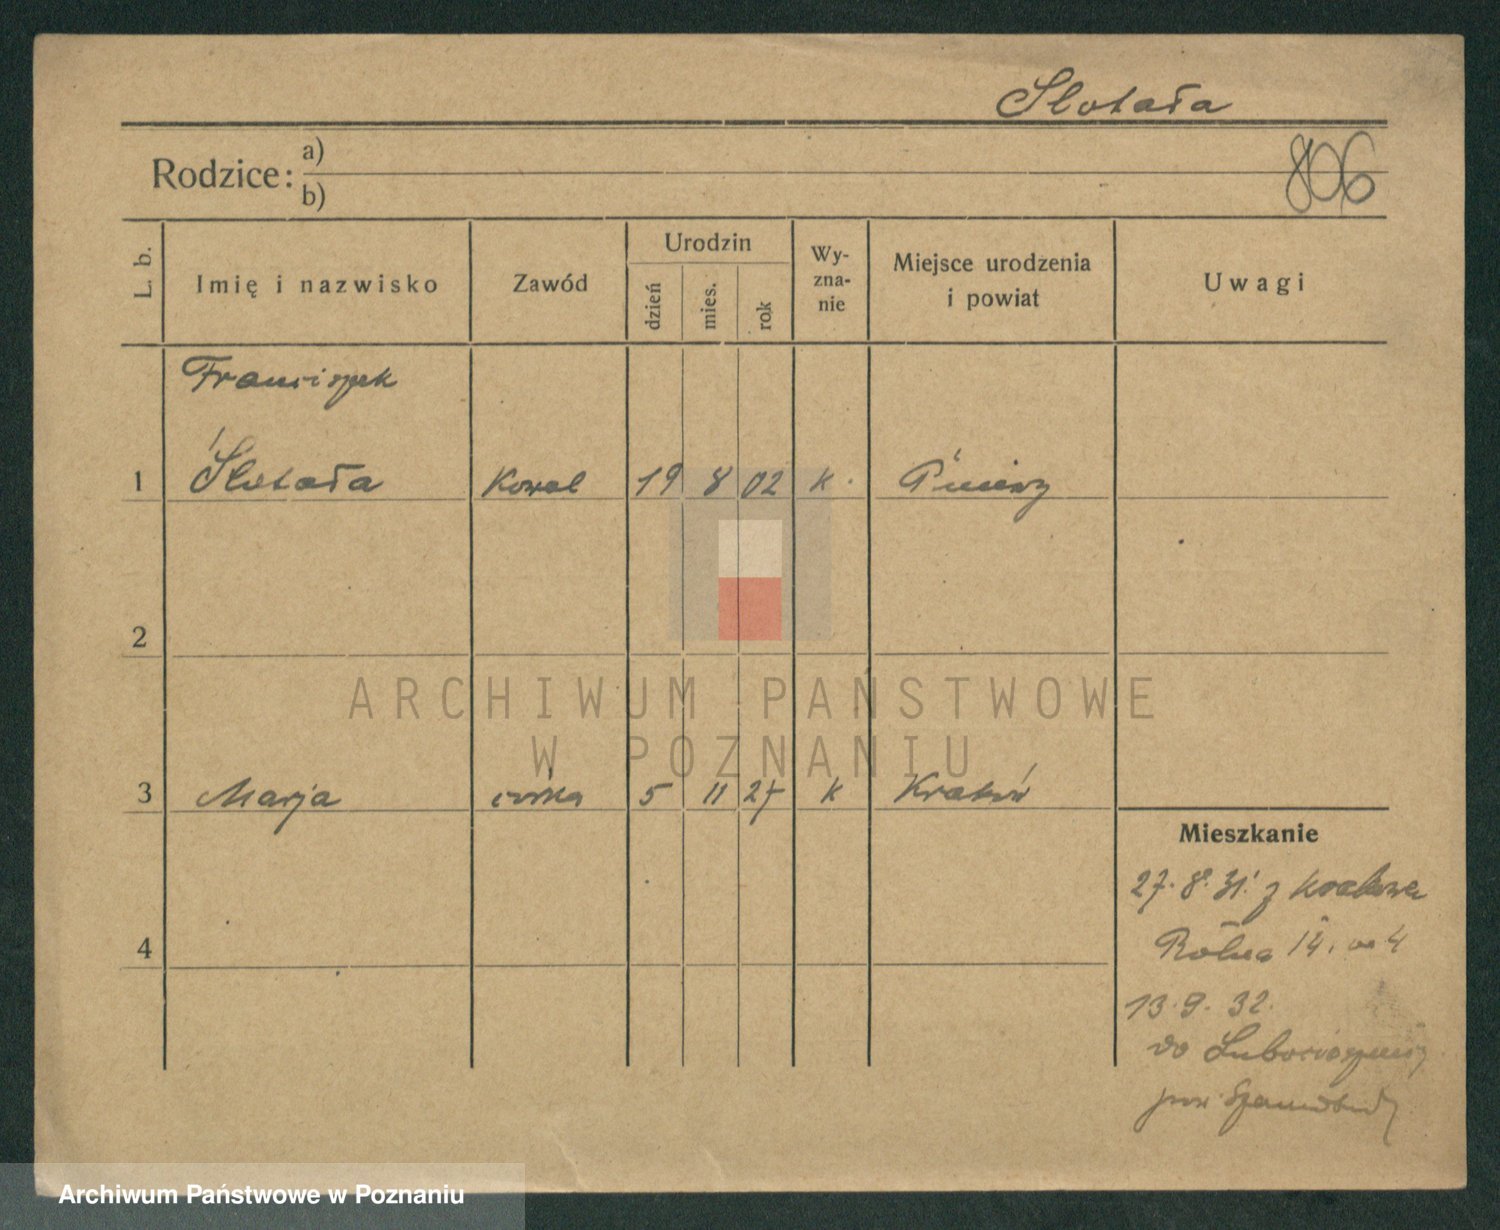 Slotała
806
Rodzice: a)
b)
L. b.
Imię i nazwisko
Zawód
Urodzin
dzień
mies.
rok
Wy-
zna-
nie
Miejsce urodzenia
i powiat
Uwagi
Franciszek
1 Ślotała Kowal 19 8 02 k. Pniewy
2
ARCHIWUM PAŃSTWOWE
W POZNANIU
3 Marja córka 5 11 27 k Kraków
Mieszkanie
27. 8. 31. z Krakowa
Rolna 14. m 4
4
13. 9. 32.
do
pow. Szamotuły
Archiwum Państwowe w Poznaniu